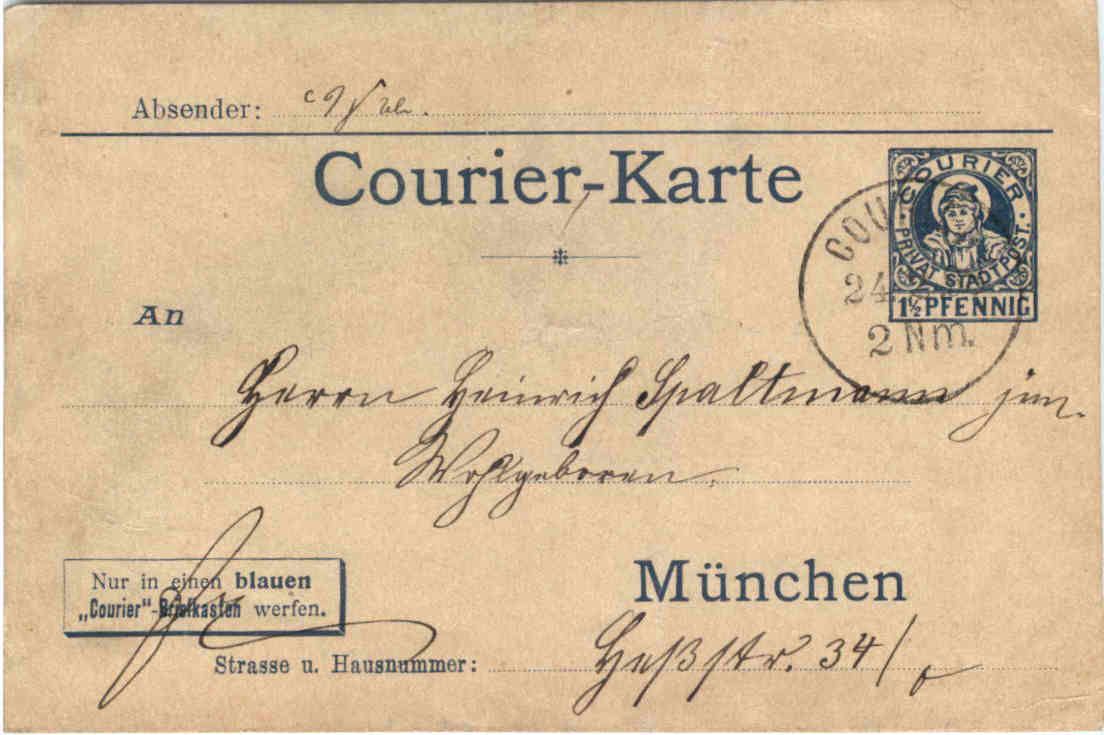 Absender:
Courier-Karte
COURIER
PRIVAT STADTPOST.
1½ PFENNIG
COU
24
2 Nm.
An
Herrn Heinrich Spaltmann jun.
Wohlgeboren.
Nur in einen blauen
„Courier“-Briefkasten werfen.
München
Strasse u. Hausnummer: Heßstr. 34/